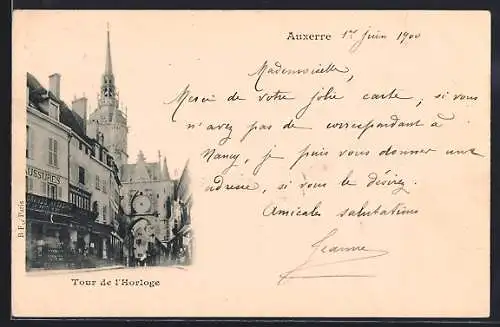 Auxerre 1er juin 1900
Mademoiselle,
Merci de votre jolie carte; si vous
n'avez pas de correspondant à
Nancy, je puis vous donner une
adresse, si vous le désirez.
Amicales salutations
Jeanne
AUSSURES
B. F., Paris
Tour de l'Horloge